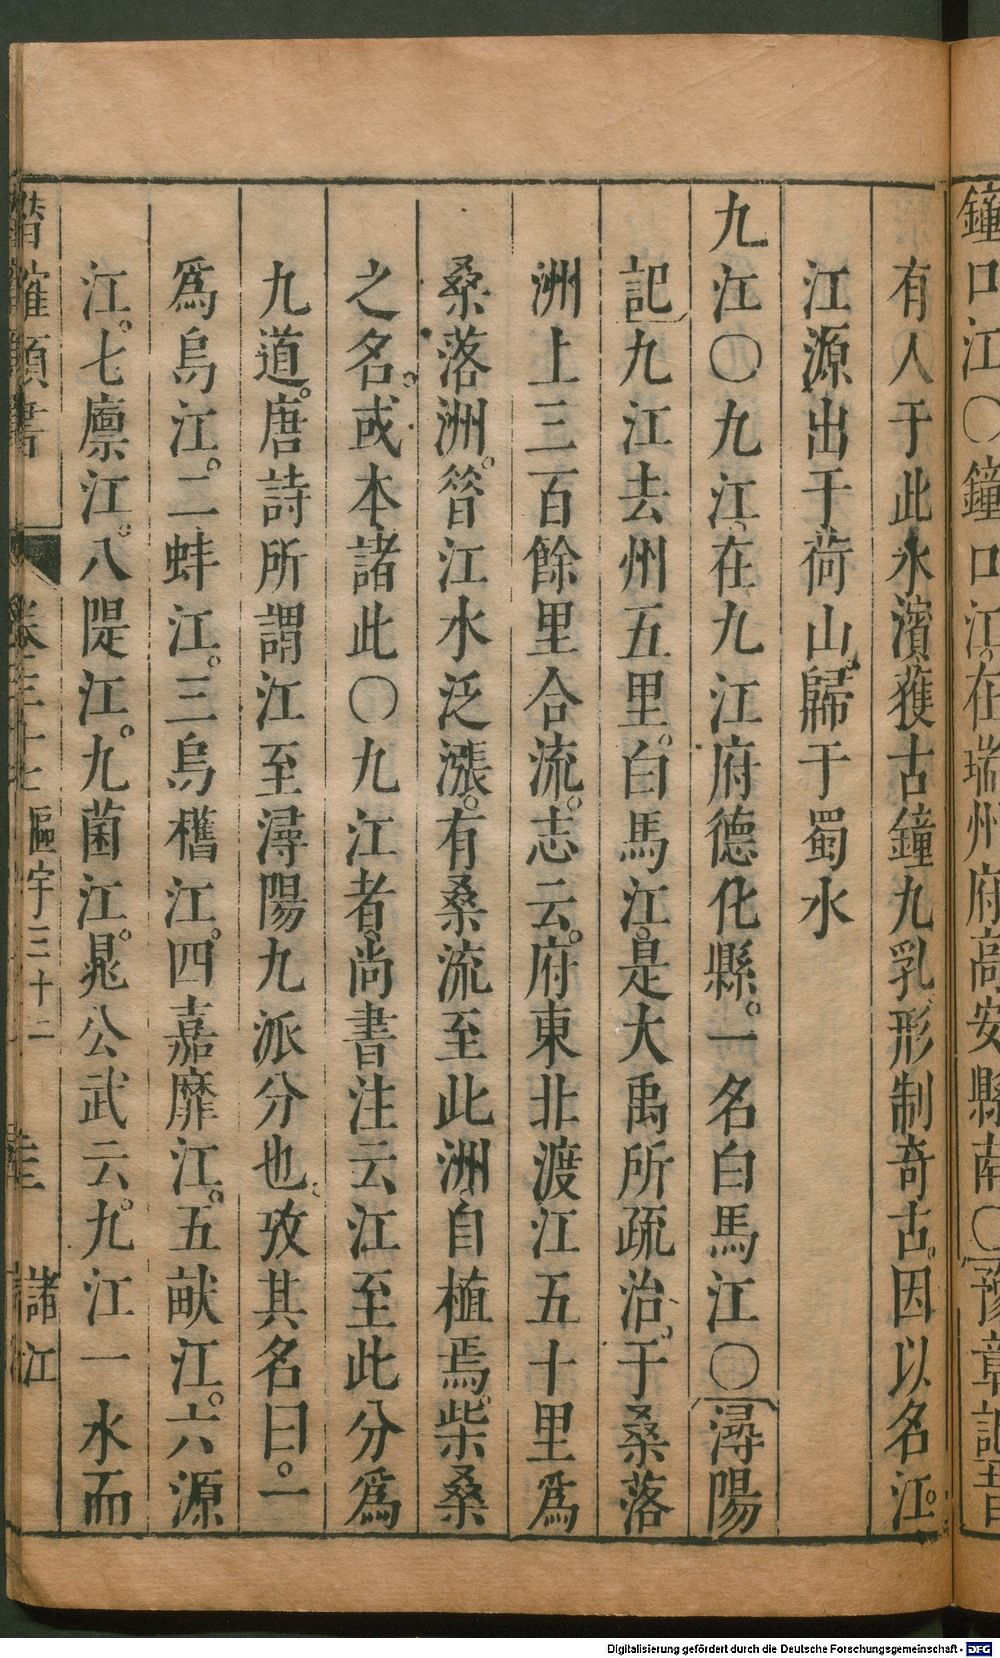 鐘口江〇鐘口江在瑞州府高安縣南〇豫章記昔
有人于此水濱獲古鐘九乳形制奇古。因以名江。
江源出于荷山。歸于蜀水
九江〇九江在九江府德化縣。一名白馬江〇潯陽
記九江去州五里。白馬江。是大禹所疏治。于桑落
洲上三百餘里合流。志云。府東北渡江五十里爲
桑落洲。昝江水泛漲。有桑流至此洲自植焉。柴桑
之名。或本諸此〇九江者尚書注云江至此分爲
九道。唐詩所謂江至潯陽九派分也。攷其名曰。一
爲烏江。二蚌江。三烏樵江。四嘉靡江。五畎江。六源
江。七廩江。八隄江。九菌江。晁公武云。九江一水而
潛確類書 卷三十七 區宇三十二 諸江
Digitalisierung gefördert durch die Deutsche Forschungsgemeinschaft - DFG